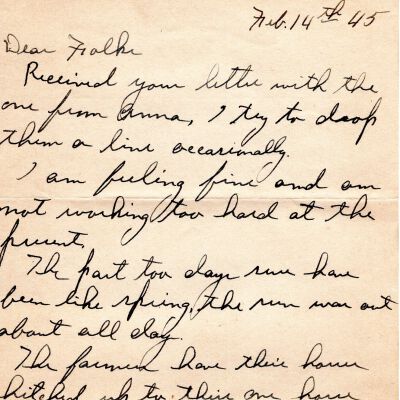 Feb. 14th 45
Dear Folks
Received your letter with the
one from Anna, I try to drop
them a line occasionally.
I am feeling fine and am
not working too hard at the
present,
The past too days sure have
been like spring, the sun was out
about all day.
The farmers have their horse
hitched up to their one horse